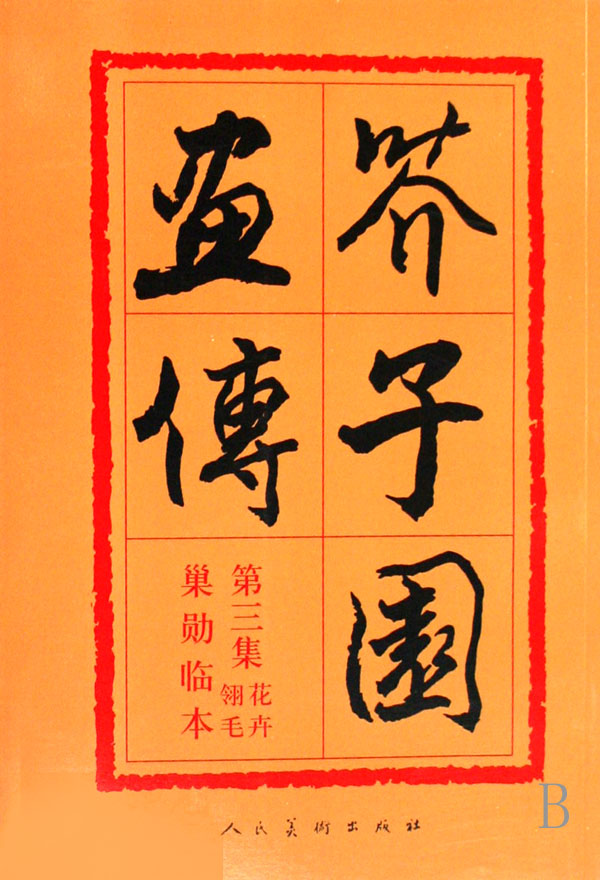 芥子園
畫傳
第三集 花卉
翎毛
巢勋临本
人民美術出版社
B